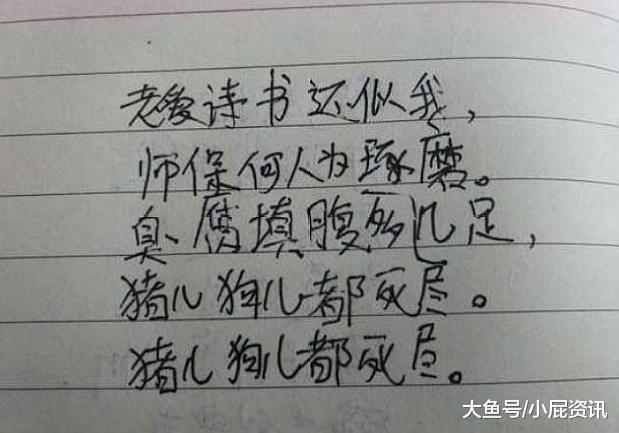 老爱诗书还似我，
师保何人为琢磨。
臭腐填腹死几足，
猪儿狗儿都死尽。
猪儿狗儿都死尽。
大鱼号/小屁资讯